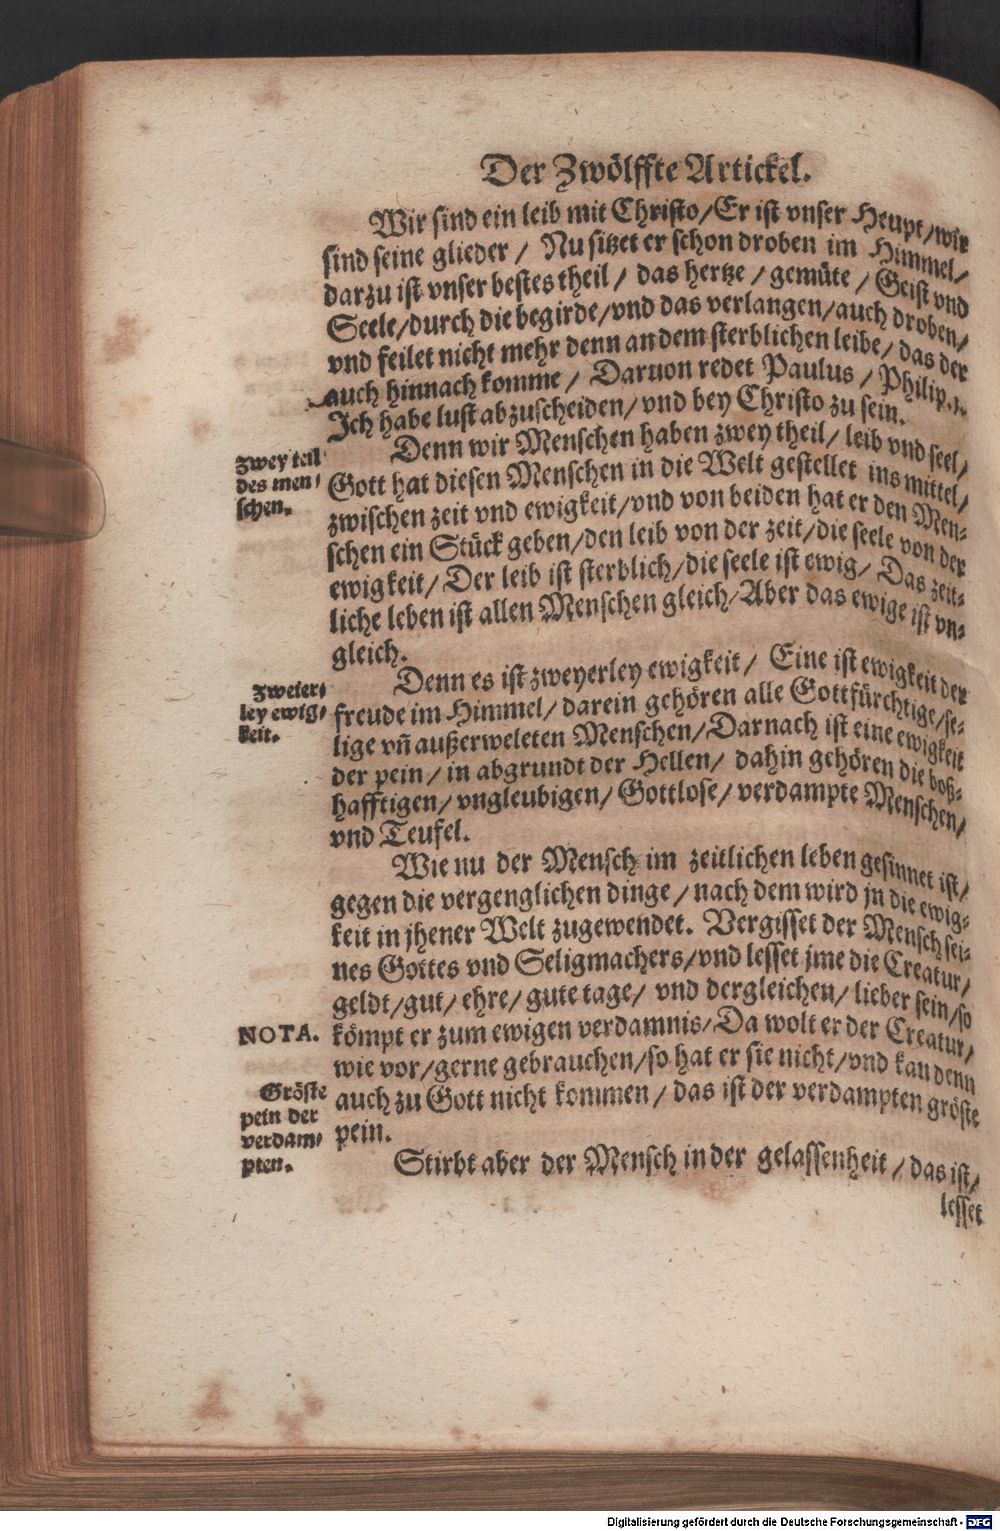 Der Zwölffte Artickel.
Wir sind ein leib mit Christo/Er ist vnser Heupt/wir
sind seine glieder / Nu sitzet er schon droben im Himmel/
darzu ist vnser bestes theil / das hertze / gemüte / Geist vnd
Seele/durch die begirde/vnd das verlangen/auch droben/
vnd feilet nicht mehr denn an dem sterblichen leibe/ das der
auch hinnach komme / Daruon redet Paulus / Philip.1.
Ich habe lust abzuscheiden/vnd bey Christo zu sein.
zwey teil
des men/
schen.
Denn wir Menschen haben zwey theil/ leib vnd seel/
Gott hat diesen Menschen in die Welt gestellet ins mittel/
zwischen zeit vnd ewigkeit/vnd von beiden hat er den Men-
schen ein Stück geben/den leib von der zeit/die seele von der
ewigkeit/ Der leib ist sterblich/die seele ist ewig/ Das zeit-
liche leben ist allen Menschen gleich/Aber das ewige ist vn-
gleich.
zweier/
ley ewig/
keit.
Denn es ist zweyerley ewigkeit/ Eine ist ewigkeit der
freude im Himmel/ darein gehören alle Gottfürchtige/se-
lige vñ außerweleten Menschen/Darnach ist eine ewigkeit
der pein/ in abgrundt der Hellen/ dahin gehören die boß-
hafftigen/ vngleubigen/ Gottlose/ verdampte Menschen/
vnd Teufel.
Wie nu der Mensch im zeitlichen leben gesinnet ist/
gegen die vergenglichen dinge / nach dem wird jn die ewig-
keit in jhener Welt zugewendet. Vergisset der Mensch sei-
nes Gottes vnd Seligmachers/vnd lesset jme die Creatur/
geldt/gut/ ehre/ gute tage/ vnd dergleichen/ lieber sein/so
NOTA.
kömpt er zum ewigen verdamnis/Da wolt er der Creatur/
wie vor/gerne gebrauchen/so hat er sie nicht/vnd kan denn
auch zu Gott nicht kommen / das ist der verdampten gröste
pein.
Gröste
pein der
verdam/
pten.
Stirbt aber der Mensch in der gelassenheit / das ist/
lesset
Digitalisierung gefördert durch die Deutsche Forschungsgemeinschaft - DFG